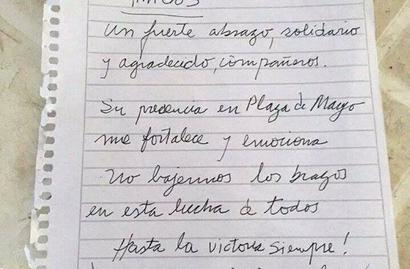 Un fuerte abrazo, solidario
y agradecido, compañeros.
Su presencia en Plaza de Mayo
me fortalece y emociona
No bajemos los brazos
en esta lucha de todos
Hasta la victoria siempre!